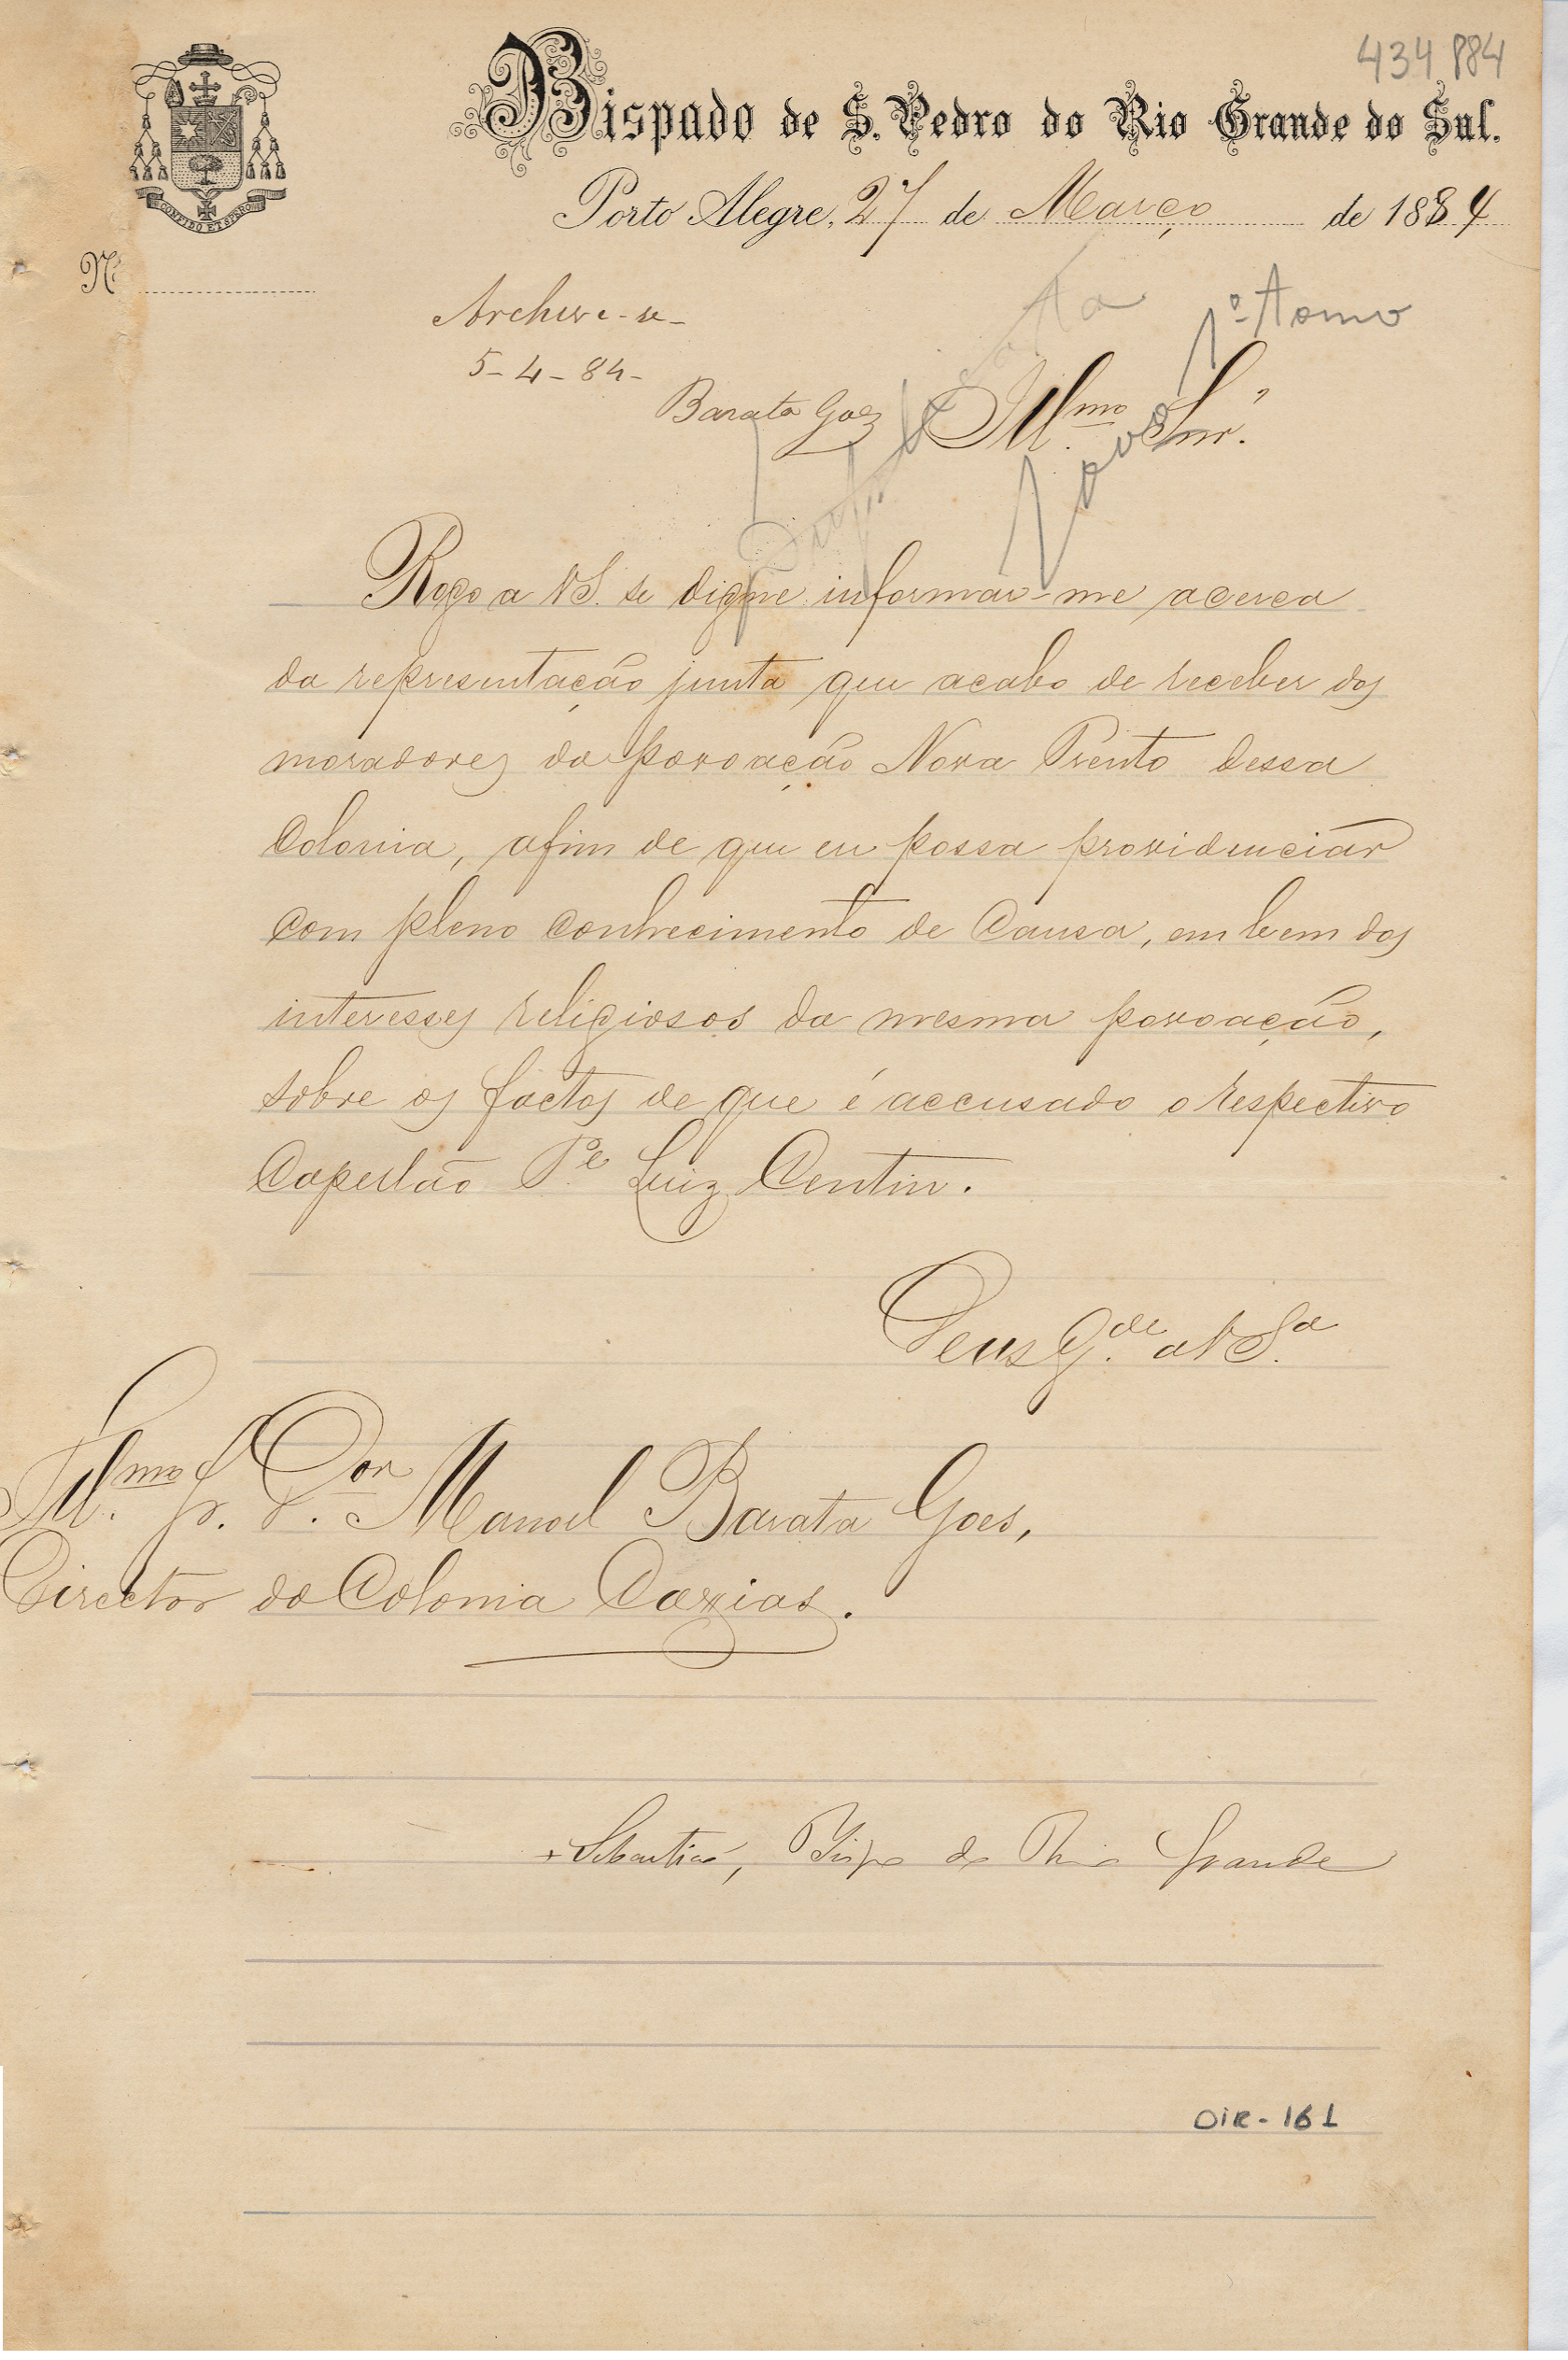 434 884
Bispado de S. Pedro do Rio Grande do Sul.
CONFIDO ET SPERO
Porto Alegre, 27 de Março de 1884
Nº
Archive-se-
5-4-84-
Barata Goes
1º Tomo
Illmo Snr.
Rogo a VS. se digne informar-me acerca
da representação junta que acabo de receber dos
moradores da povoação Nova Trento dessa
Colonia, afim de que eu possa providenciar
com pleno conhecimento de causa, em bem dos
interesses religiosos da mesma povoação,
sobre os factos de que é accusado o respectivo
Capellão Pe. Luiz Centin.
Deus Gde. a VSa.
Illmo. Sr. Dor. Manoel Barata Goes,
Director da Colonia Caxias.
+ Sebastião, Bispo do Rio Grande
DIR-161